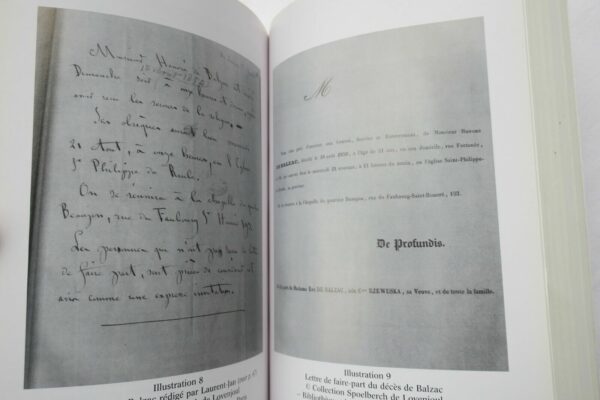 Monsieur Honoré de Balzac est
18 août 1850
Dimanche soir à onze heures et demie, après
avoir reçu les secours de la religion.
Ses obsèques auront lieu mercredi
21 Août, à onze heures, en l'Eglise
St Philippe du Roule.
On se réunira à la chapelle du quartier
Beaujon, rue du Faubourg St Honoré 193.
Les personnes qui n'ont pas reçu de billet
de faire part, sont priées de considérer cet
avis comme une expresse invitation.
Illustration 8
Balzac rédigé par Laurent-Jan (voir p.
de Lovenjoul
M
Vous êtes prié d'assister aux Convoi, Service et Enterrement, de Monsieur Honoré
DE BALZAC, décédé le 18 août 1850, à l'âge de 51 ans, en son domicile, rue Fortunée,
qui se feront le mercredi 21 courant, à 11 heures du matin, en l'église Saint-Philippe-
du-Roule, sa paroisse.
On se réunira à la Chapelle du quartier Beaujon, rue du Faubourg-Saint-Honoré, 193.
De Profundis.
De la part de Madame Eve DE BALZAC, née Ctesse RZEWUSKA, sa Veuve, et de toute la famille.
Illustration 9
Lettre de faire-part du décès de Balzac
© Collection Spoelberch de Lovenjoul
– Bibliothèque